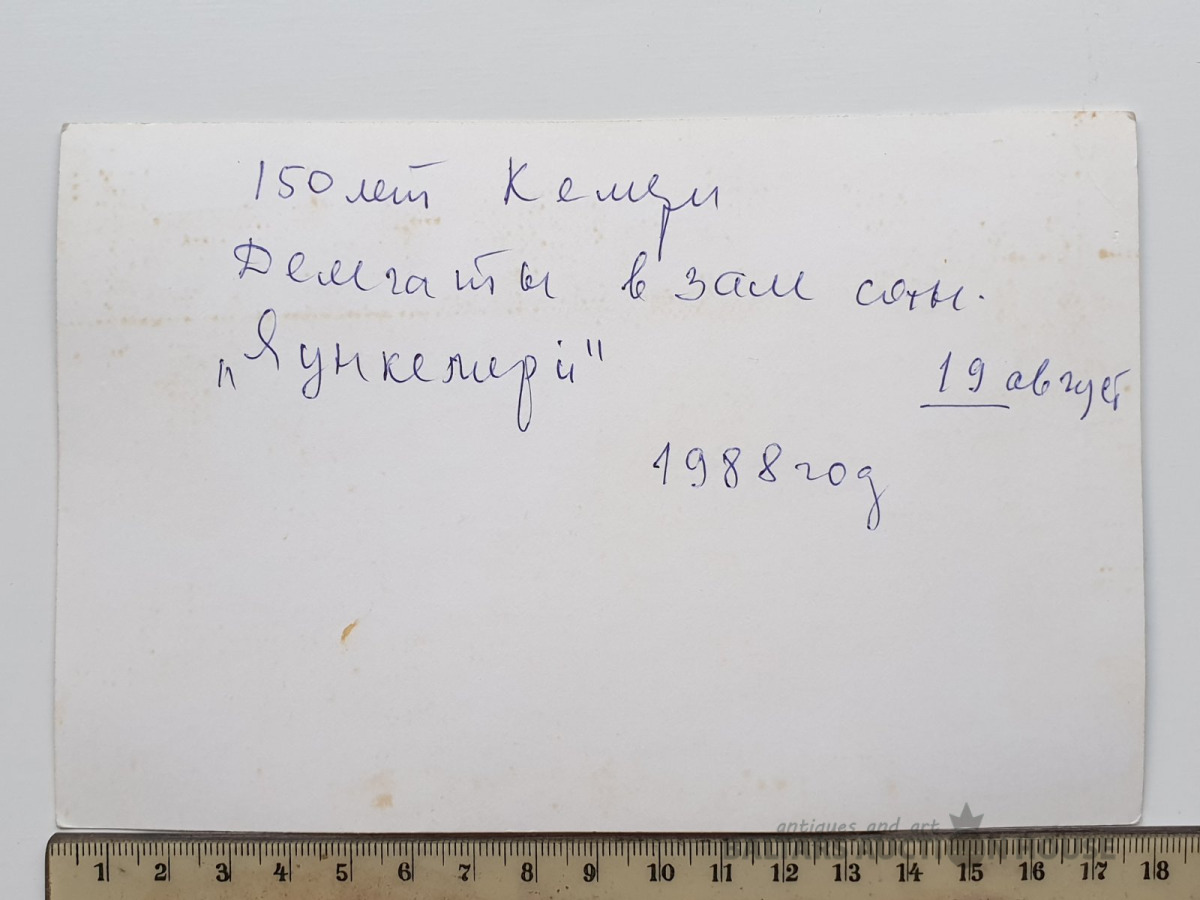 150 лет Кемери
Делегаты в зале
„Яункемери"
19 август
1988 год
antiques and art
AUCTION HOUSE
1 2 3 4 5 6 7 8 9 10 11 12 13 14 15 16 17 18